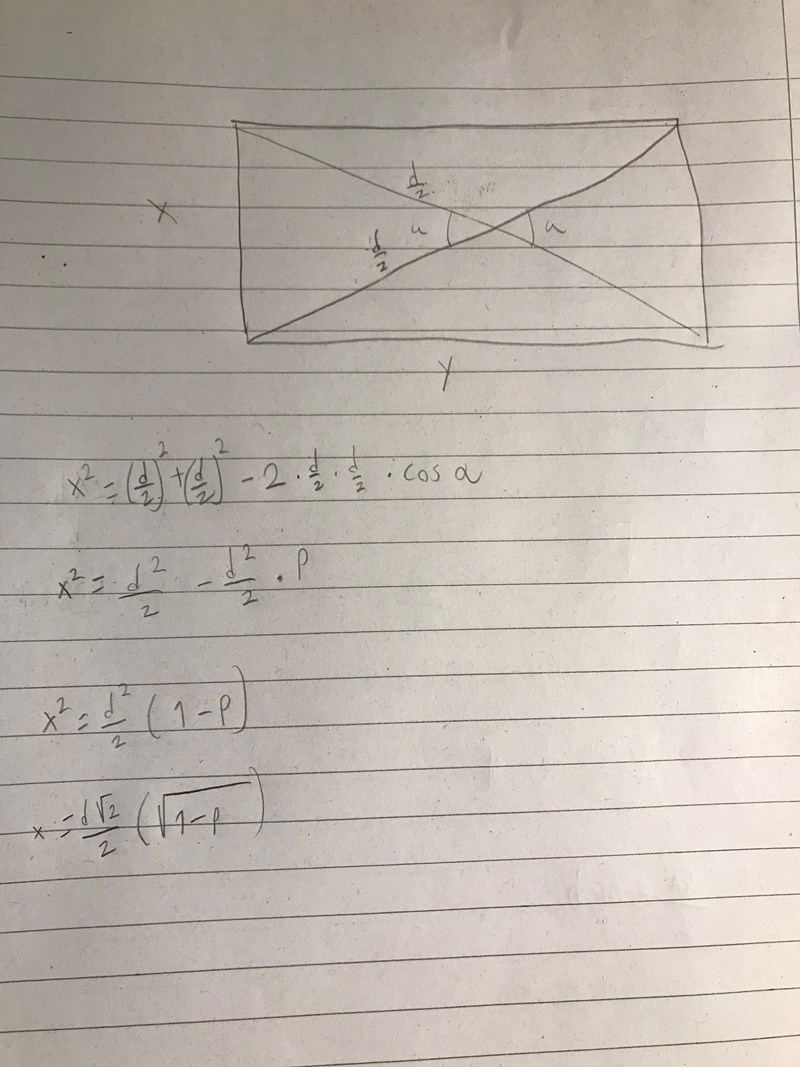 d/2
X
α
α
d/2
y
x² = (d/2)² + (d/2)² - 2 · d/2 · d/2 · cos α
x² = d²/2 - d²/2 · p
x² = d²/2 (1-p)
x = d√2/2 (√1-p)